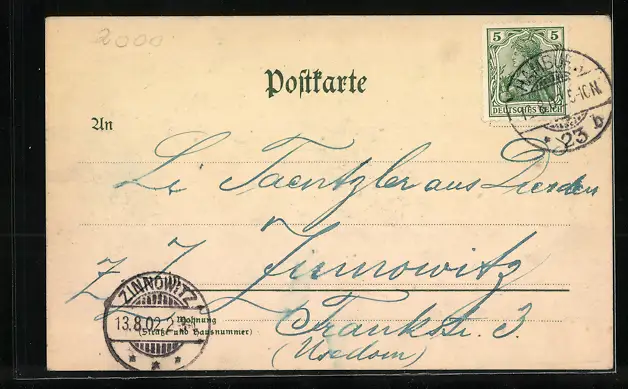 2000
5 5
DEUTSCHES REICH
HAMBURG
5-10N
* 23 b
Postkarte
An
Taentzler aus Dresden
z. Z. Zinnowitz
ZINNOWITZ
13.8.02. 2
Wohnung
(Straße und Hausnummer)
Frankstr. 3
(Usedom)